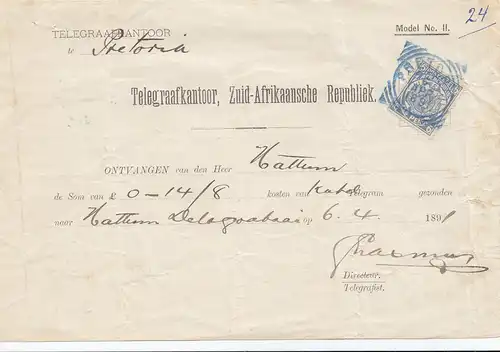 24
TELEGRAAFKANTOOR
Model No. II.
te Pretoria
PRETO
Telegraafkantoor, Zuid-Afrikaansche Republiek.
ONTVANGEN van den Heer Hattum
de Som van £ 0-14/8 kosten van Kabel Telegram gezonden
naar Hattum Delagoabaai op 6.4. 1891
Erasmus
Directeur.
Telegrafist.